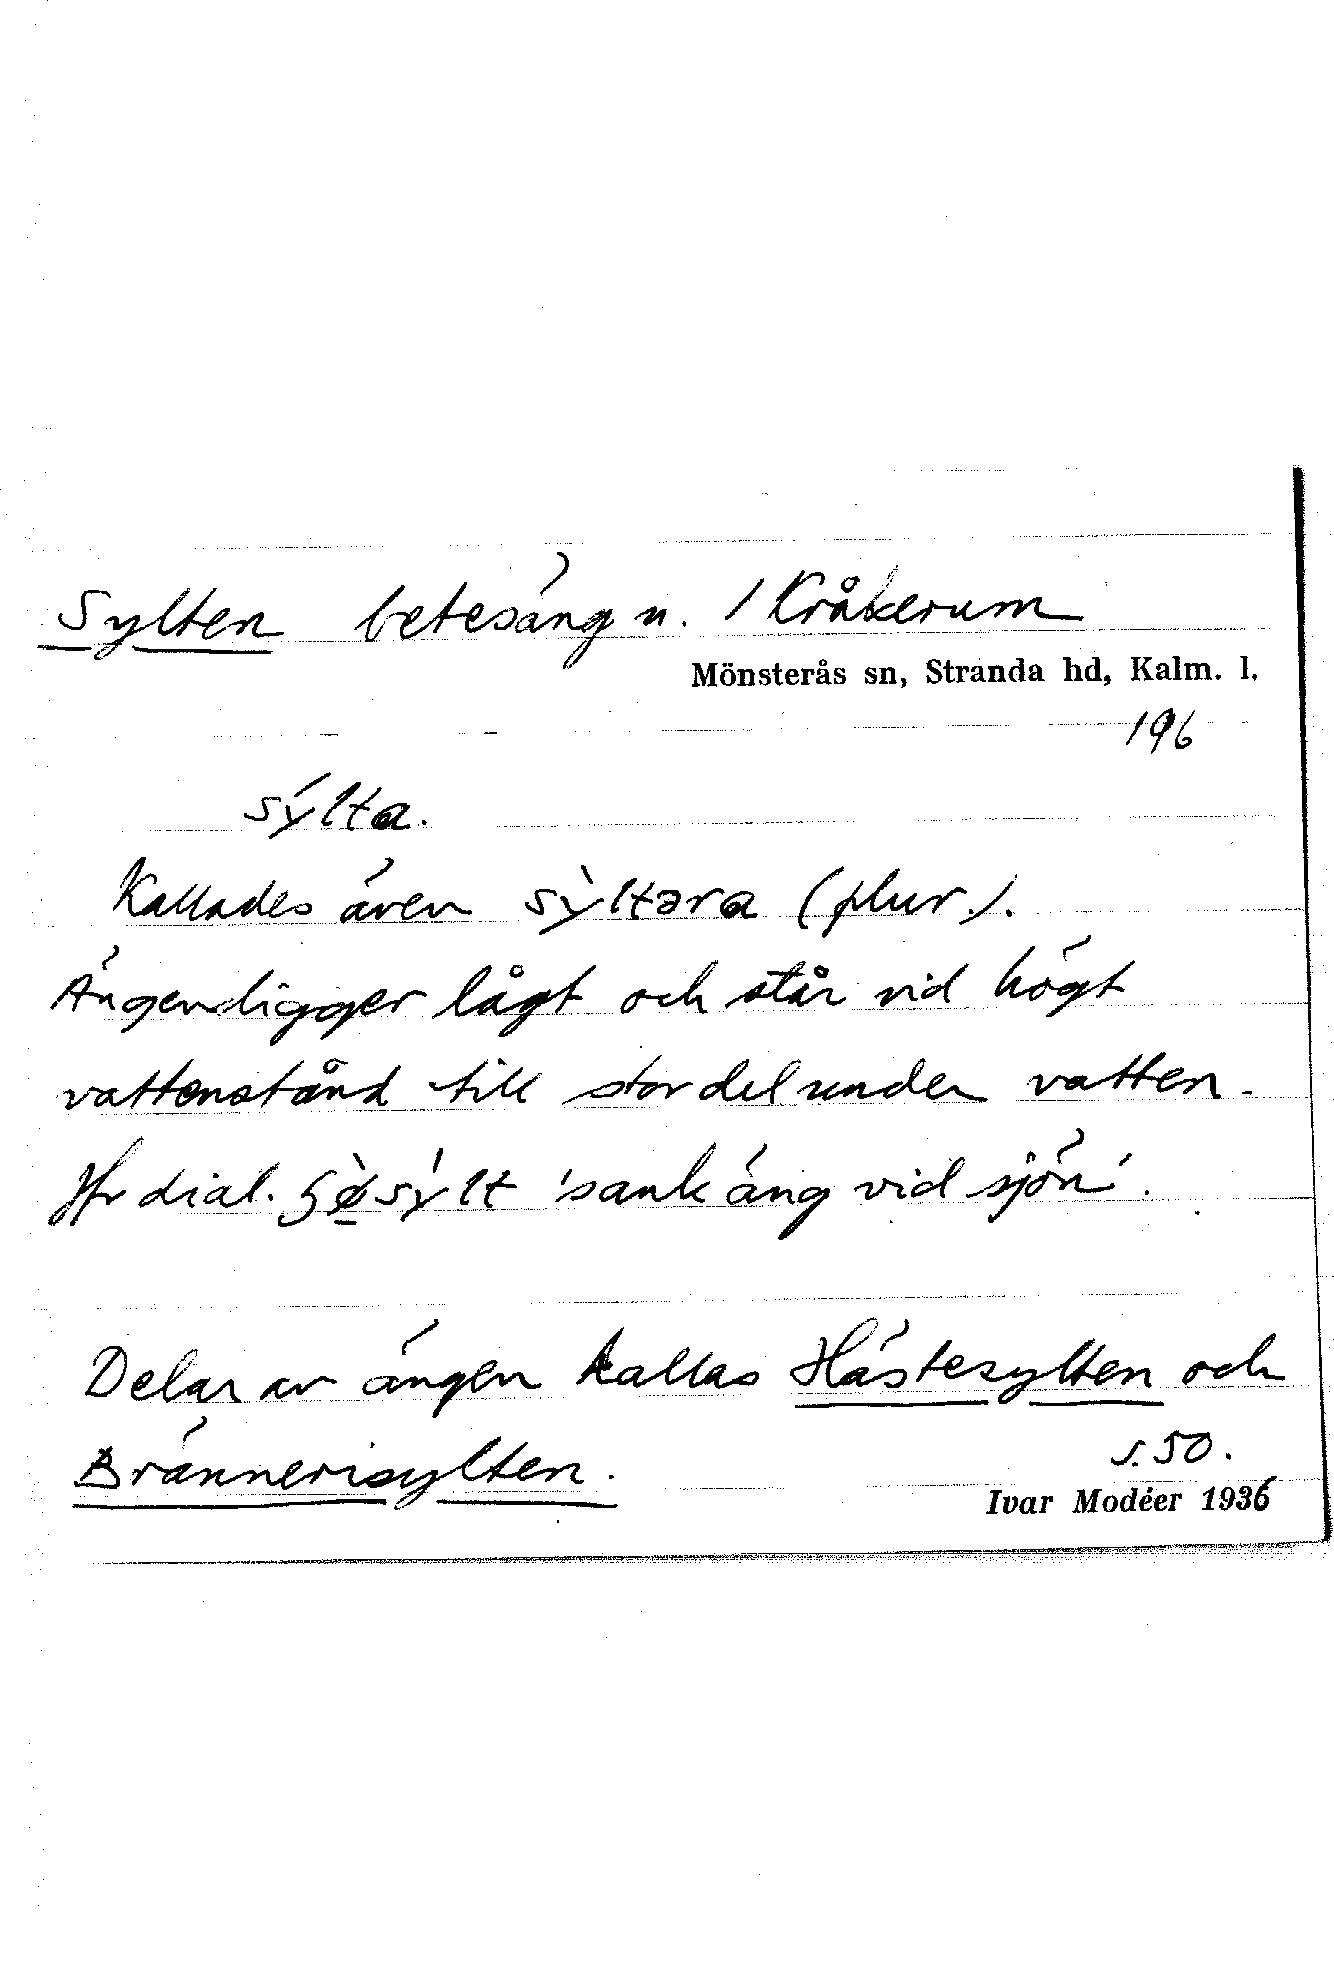 Sylten betesäng n. / Kråkerum
Mönsterås sn, Stranda hd, Kalm. l.
196
sýlta.
Kallades även sỳltəra (plur.).
Ängen ligger lågt och står vid högt
vattenstånd till stor del under vatten.
Jfr dial. sýlt 'sank äng vid sjön'.
Delar av ängen kallas Hästesylten och
Brännerisylten.
s. 50.
Ivar Modéer 1936